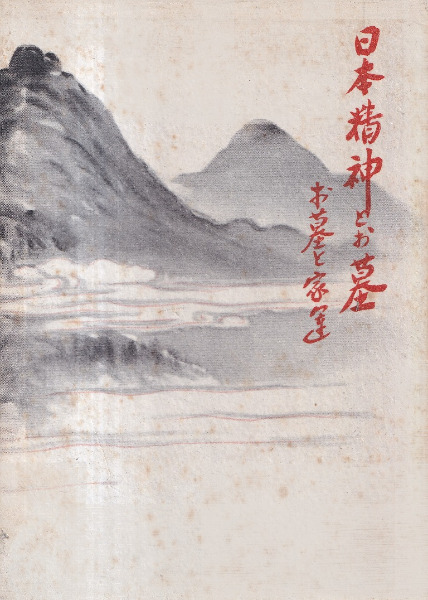 日本精神とお墓
お墓と家運